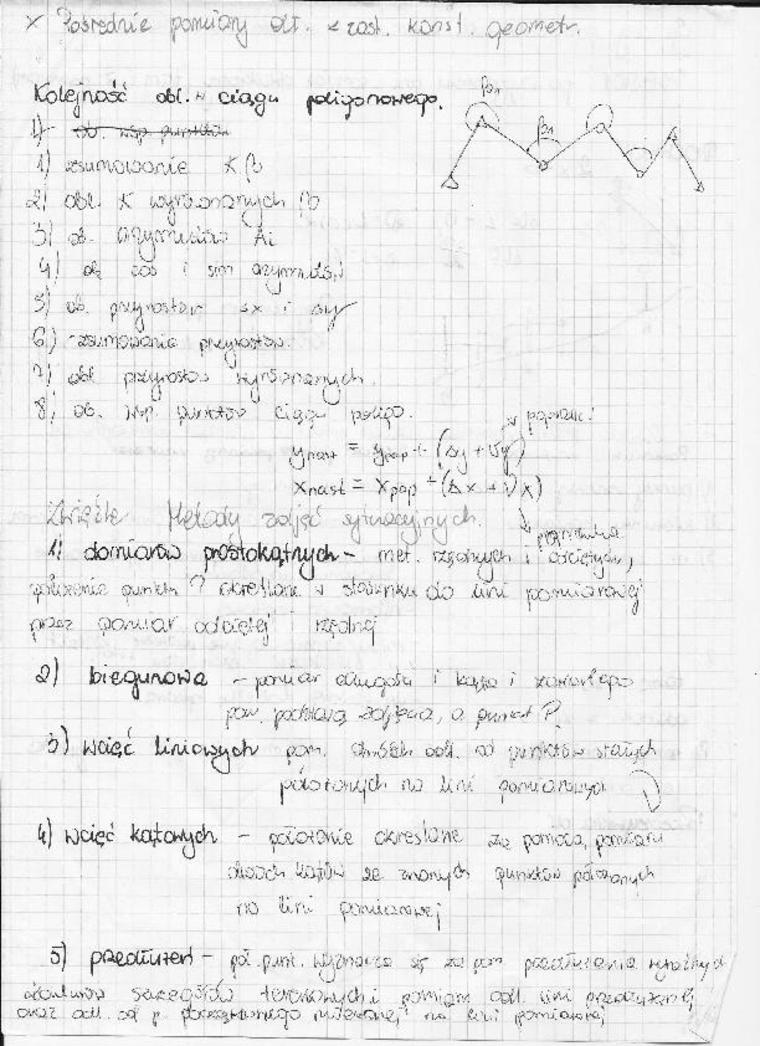 x Pośrednie pomiary odl. z zast. konst. geometr.
Kolejność obl. w ciągu poligonowego.
1) ob. wsp. punktów
1) zsumowanie ∢ β
2) obl. ∢ wyrównanych β
3) ob. azymutów Ai
4) ob cos i sin azymutów
5) ob. przyrostów Δx i Δy
6) zsumowanie przyrostów.
7) obl przyrostów wyrównanych.
8) ob. wsp. punktów ciągu poligo.
poprawki
y nast = y pop + (Δy + Vy)
x nast = x pop + (Δx + Vx)
Metody zdjęć sytuacyjnych.
1) domiarów prostokątnych - met. rzędnych i odciętych,
położenie punktu P określane w stosunku do linii pomiarowej
przez pomiar odciętej i rzędnej
2) biegunowa - pomiar długości i kąta i zawartego
pow. podstawą zdjęcia, a punkt P.
3) wcięć liniowych pom. dwóch odl. od punktów stałych
położonych na linii pomiarowych
4) wcięć kątowych - położenie określane za pomocą pomiaru
dwóch kątów ze znanych punktów położonych
na linii pomiarowej
5) przedłużeń - poł. punk. wyznacza się za pom przedłużenia wyraźnych
konturów szczegółów terenowych i pomiaru odl. linii przedłużonej
oraz odl. od p. początkowego na linii pomiarowej